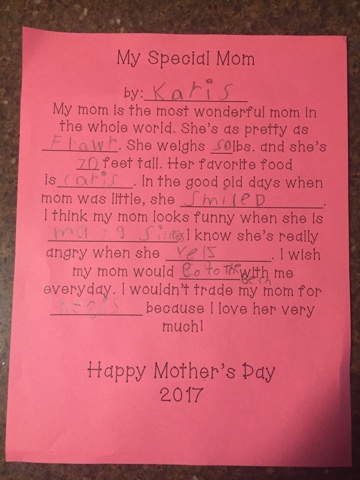 My Special Mom
by: Karis
My mom is the most wonderful mom in
the whole world. She's as pretty as
Flawr. She weighs 50lbs. and she's
70 feet tall. Her favorite food
is caris. In the good pid days when
mom was little, she smileD.
I think my mom looks funny when she is
I know she's really
angry when she yels. I wish
my mom would go to The Bech with me
everyday. I wouldn't trade my mom for
because I love her very
much!
Happy Mother's Day
2017